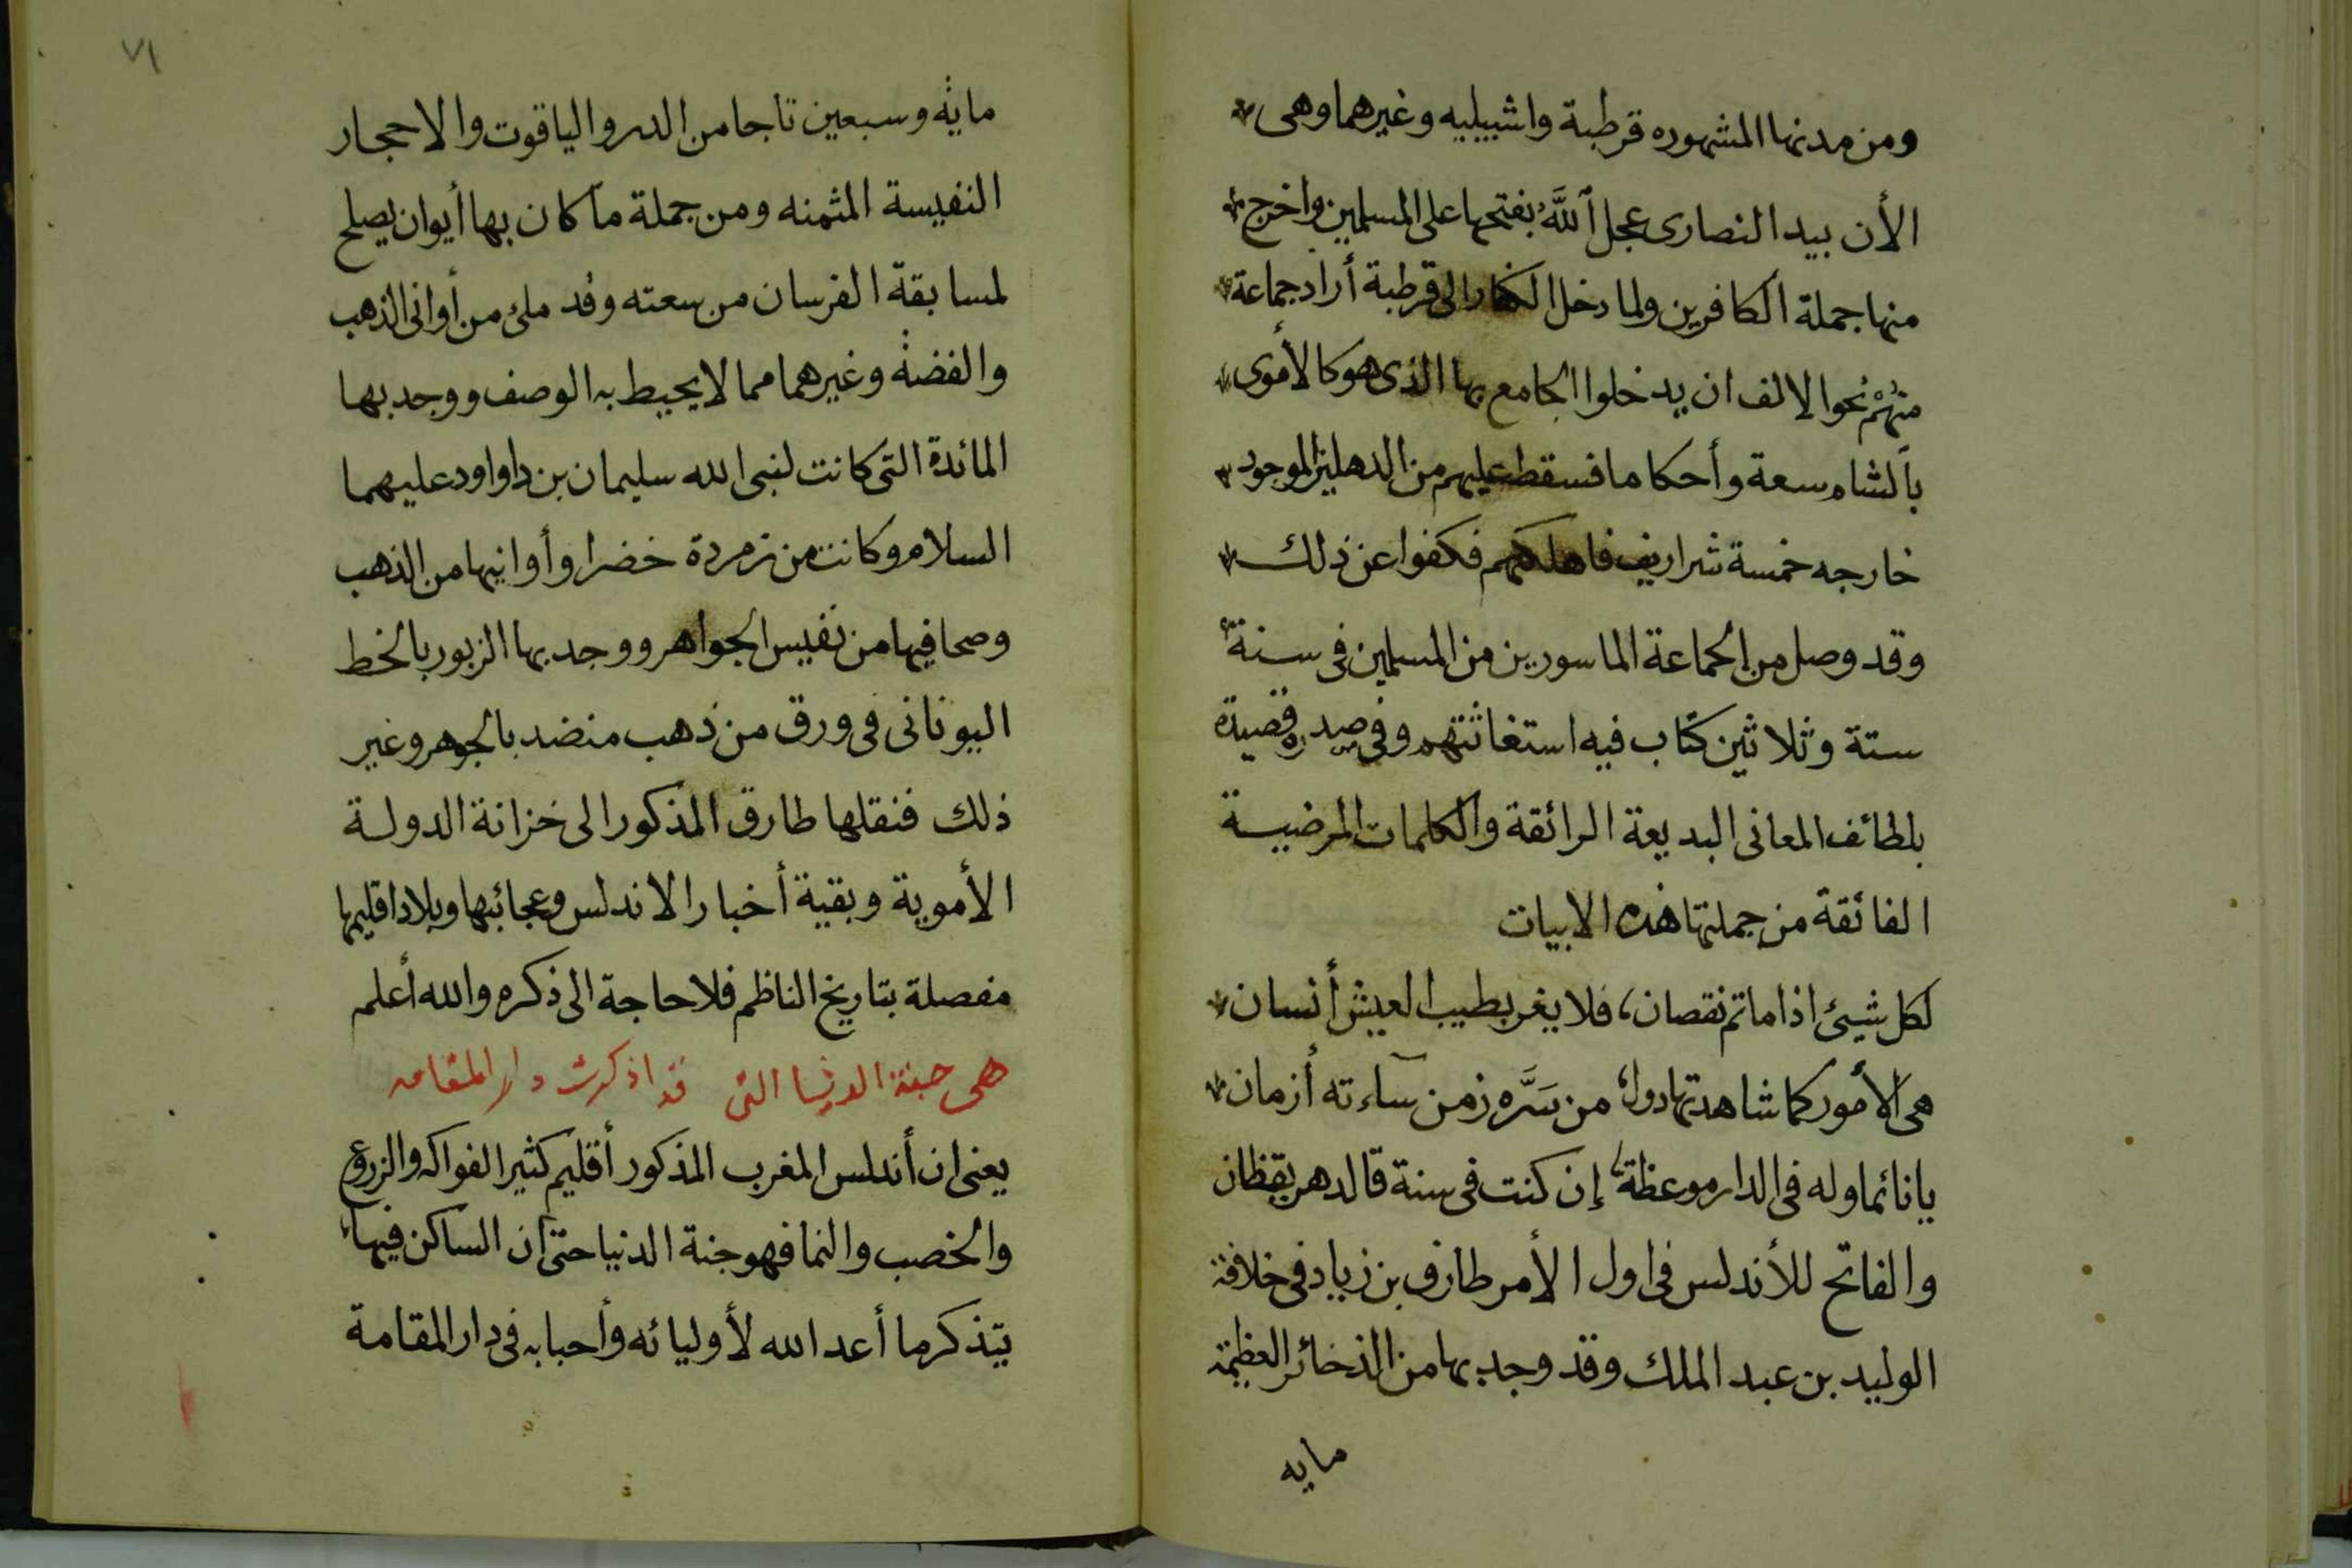 ومن مدنها المشهوره قرطبة واشبيليه وغيرهما وهى
الأن بيد النصارى عجل ٱللَّه بفتحها على المسلمين واخرج
منها جملة الكافرين ولما دخل الكفار الى قرطبة أراد جماعة
منهم نحوا لالف ان يدخلوا الجامع بها الذى هو كالأموى
بالشام سعة وأحكاما فسقط عليهم من الدهليز الموجود
خارجه خمسة شراريف فاهلكهم فكفوا عن ذلك
وقد وصل من الجماعة الماسورين من المسلمين فى سنة
ستة وثلاثين كتاب فيه استغاثتهم وفى صدره قصيدة
بلطائف المعانى البديعة الرائقة والكلمات المرضية
الفائقة من جملتها هذه الابيات
لكل شيئ اذا ماتم نقصان، فلا يغر بطيب العيش أنسان
هى الأمور كما شاهدتها دول، من سَرَّه زمن ساءته أزمان
يا نائما وله فى الدار موعظة، إن كنت فى سنة فالدهر يقظان
والفاتح للأندلس فى اول الأمر طارق بن زياد فى خلافة
الوليد بن عبد الملك وقد وجد بها من الذخائر العظيمة
مايه
٧١
ماية وسبعين تاجا من الدر والياقوت والاحجار
النفيسة المثمنه ومن جملة ما كان بها أيوان يصلح
لمسابقة الفرسان من سعته وقد ملئ من أوانى الذهب
والفضة وغيرهما مما لا يحيط به الوصف ووجد بها
المائدة التى كانت لنبى الله سليمان بن داواود عليهما
السلام وكانت من زمردة خضرا وأوانيها من الذهب
وصحافيها من نفيس الجواهر ووجد بها الزبور بالخط
اليونانى فى ورق من ذهب منضد بالجوهر وغير
ذلك فنقلها طارق المذكور الى خزانة الدولة
الأموية وبقية أخبار الاندلس وعجائبها وبلاد اقليمها
مفصلة بتاريخ الناظم فلا حاجة الى ذكره والله أعلم
هى جنة الدنيا التى قد اذكرت دار المقامه
يعنى ان أندلس المغرب المذكور أقليم كثير الفواكه والزروع
والخصب والنما فهو جنة الدنيا حتى أن الساكن فيها
يتذكر ما أعد الله لأوليائه وأحبابه فى دار المقامة